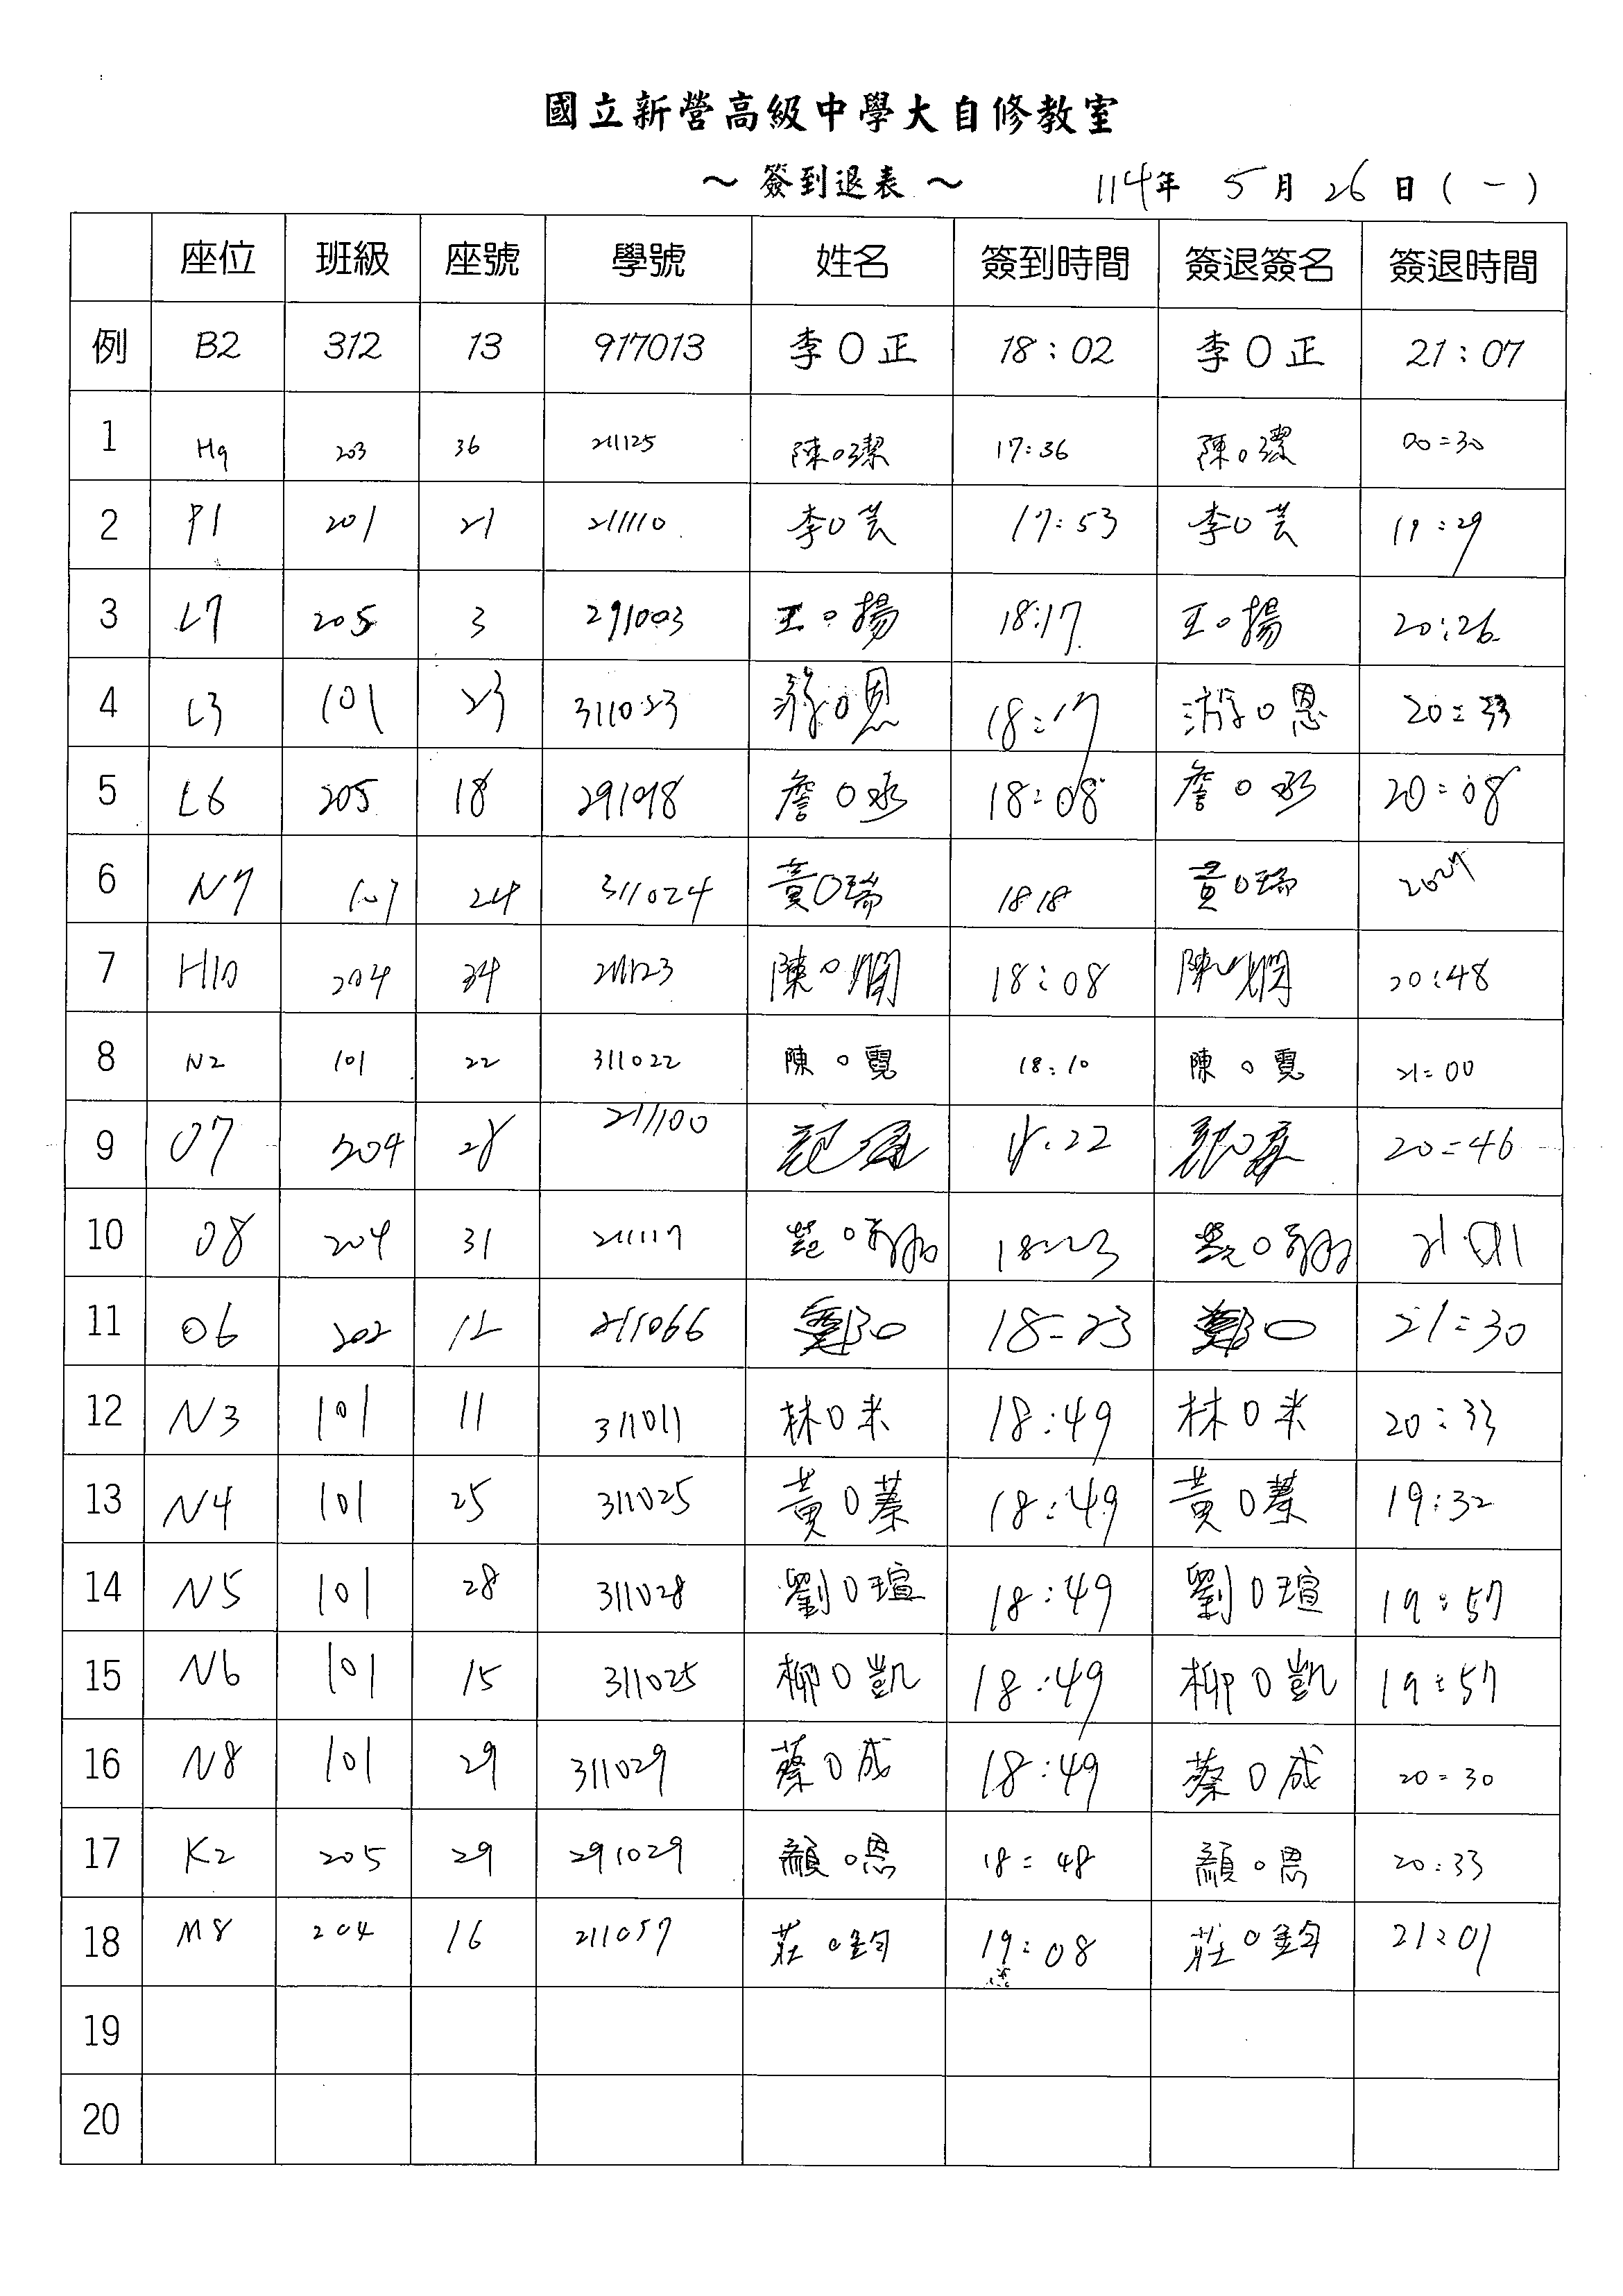 國立新營高級中學大自修教室
～ 簽到退表 ～ 114年 5月 26日(一)
座位 班級 座號 學號 姓名 簽到時間 簽退簽名 簽退時間
例 B2 312 13 917013 李O正 18:02 李O正 21:07
1 H9 203 36 211125 陳O潔 17:36 陳O潔 20:30
2 P1 201 21 211110 李O芸 17:53 李O芸 19:29
3 L7 205 3 291003 王O揚 18:17 王O揚 20:26
4 L3 101 23 311023 游O恩 18:17 游O恩 20:33
5 L6 205 18 291018 詹O丞 18:08 詹O丞 20:08
6 N7 101 24 311024 黃O瑞 1818 黃O瑞
7 H10 204 34 211123 陳O嫻 18:08 20:48
8 N2 101 22 311022 陳O霓 18:10 陳O霓 21:00
9 O7 204 28 211100 20:46
10 O8 204 31 211117 18:23
11 O6 202 12 211066 鄭O 18:23 鄭O 21:30
12 N3 101 11 311011 林O米 18:49 林O米 20:33
13 N4 101 25 311025 黃O蓁 18:49 黃O蓁 19:32
14 N5 101 28 311028 劉O瑄 18:49 劉O瑄 19:57
15 N6 101 15 311025 柳O凱 18:49 柳O凱 19:57
16 N8 101 29 311029 蔡O成 18:49 蔡O成 20:30
17 K2 205 29 291029 顏O恩 18:48 顏O恩 20:33
18 M8 204 16 211057 莊O鈞 19:08 莊O鈞 21:01
19
20